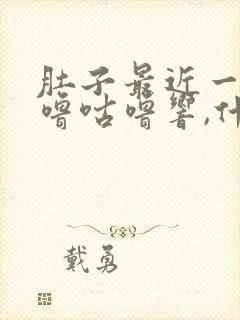 肚子最近一
噜咕噜响,什
戴勇